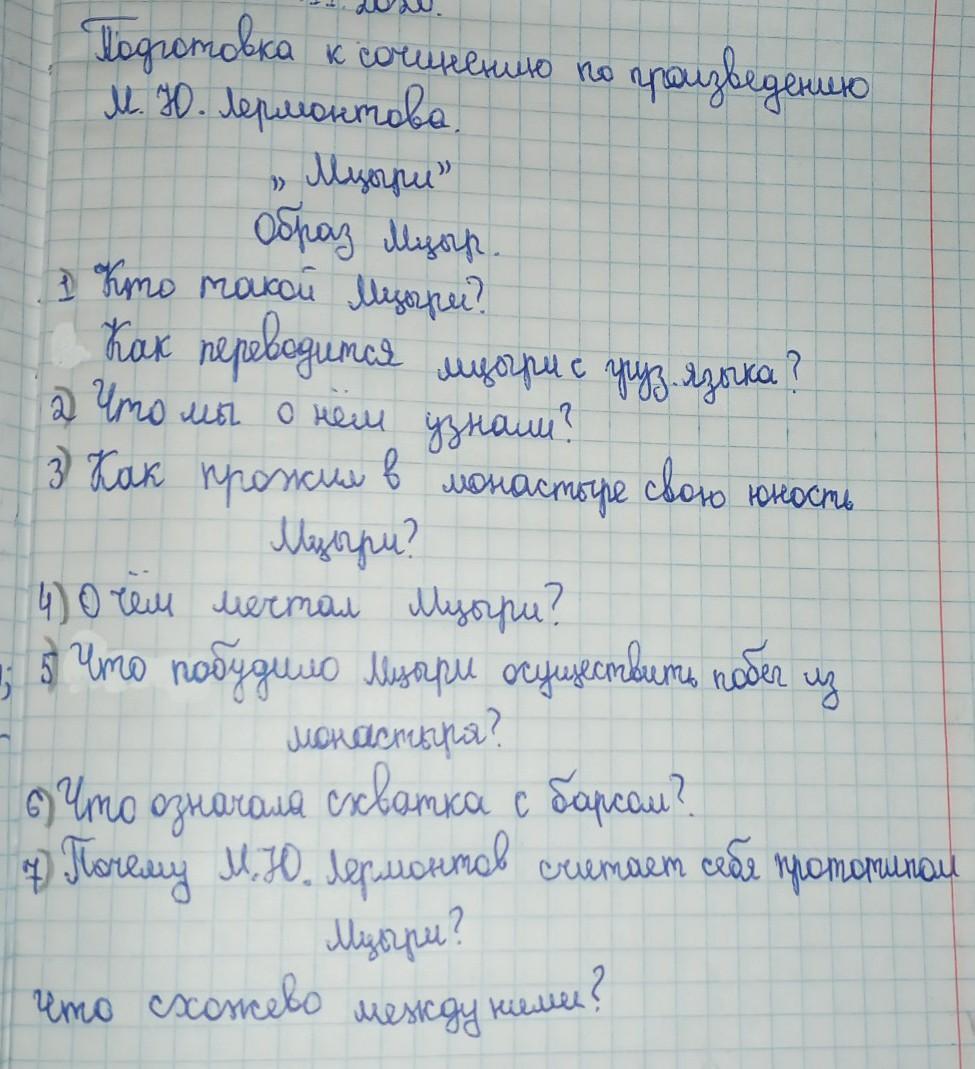 Подготовка к сочинению по произведению
М. Ю. Лермонтова.
„ Мцыри”
Образ Мцыр.
1) Кто такой Мцыри?
Как переводится мцыри с груз. языка?
2) Что мы о нём узнали?
3) Как прожил в монастыре свою юность
Мцыри?
4) О чём мечтал Мцыри?
5) Что побудило Мцыри осуществить побег из
монастыря?
6) Что означала схватка с барсом?
7) Почему М.Ю. Лермонтов считает себя прототипом
Мцыри?
Что схожево между ними?